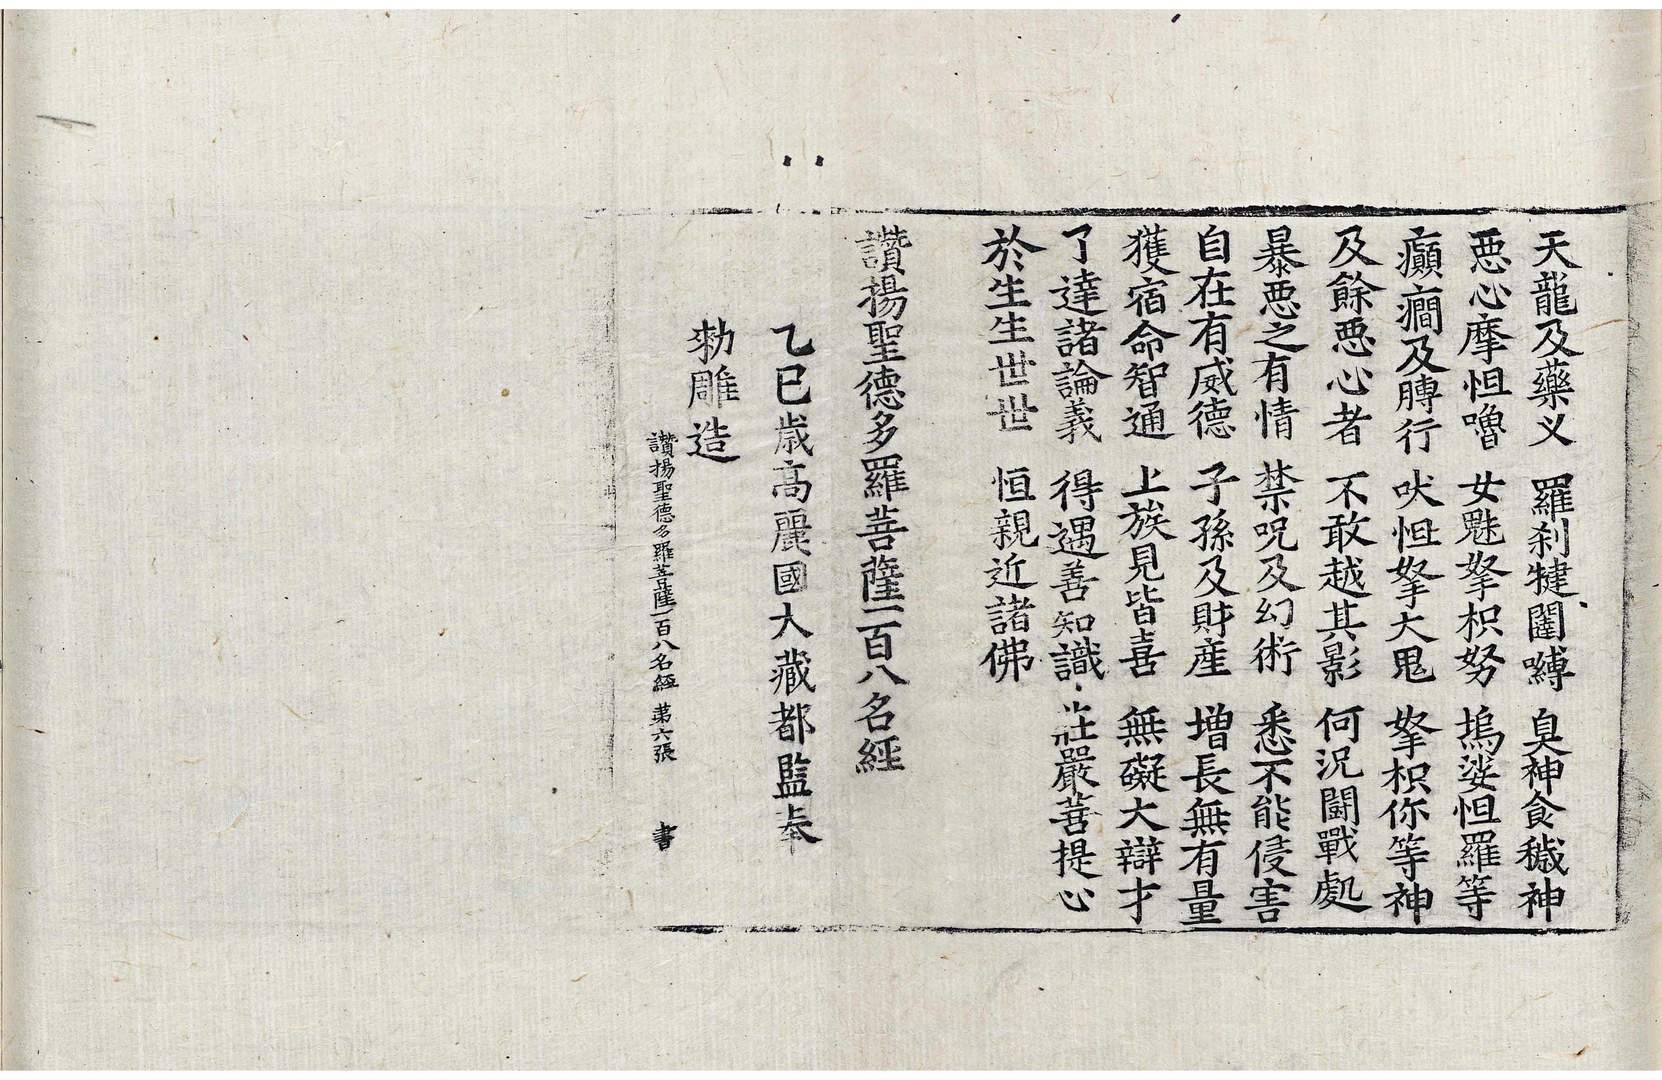 天龍及藥义　羅刹犍闥嚩　臭神食穢神
惡心摩怛嚕　女魅拏枳努　塢娑怛羅等
癲癎及膞行　吠怛拏大鬼　拏枳你等神
及餘惡心者　不敢越其影　何況鬪戰處
暴惡之有情　禁呪及幻術　悉不能侵害
自在有威德　子孫及財產　增長無有量
獲宿命智通　上族見皆喜　無礙大辯才
了達諸論義　得遇善知識　莊嚴菩提心
於生生世世　恒親近諸佛
讚揚聖德多羅菩薩一百八名經
乙巳歲高麗國大藏都監奉
勅雕造
讚揚聖德多羅菩薩一百八名經　第六張　書